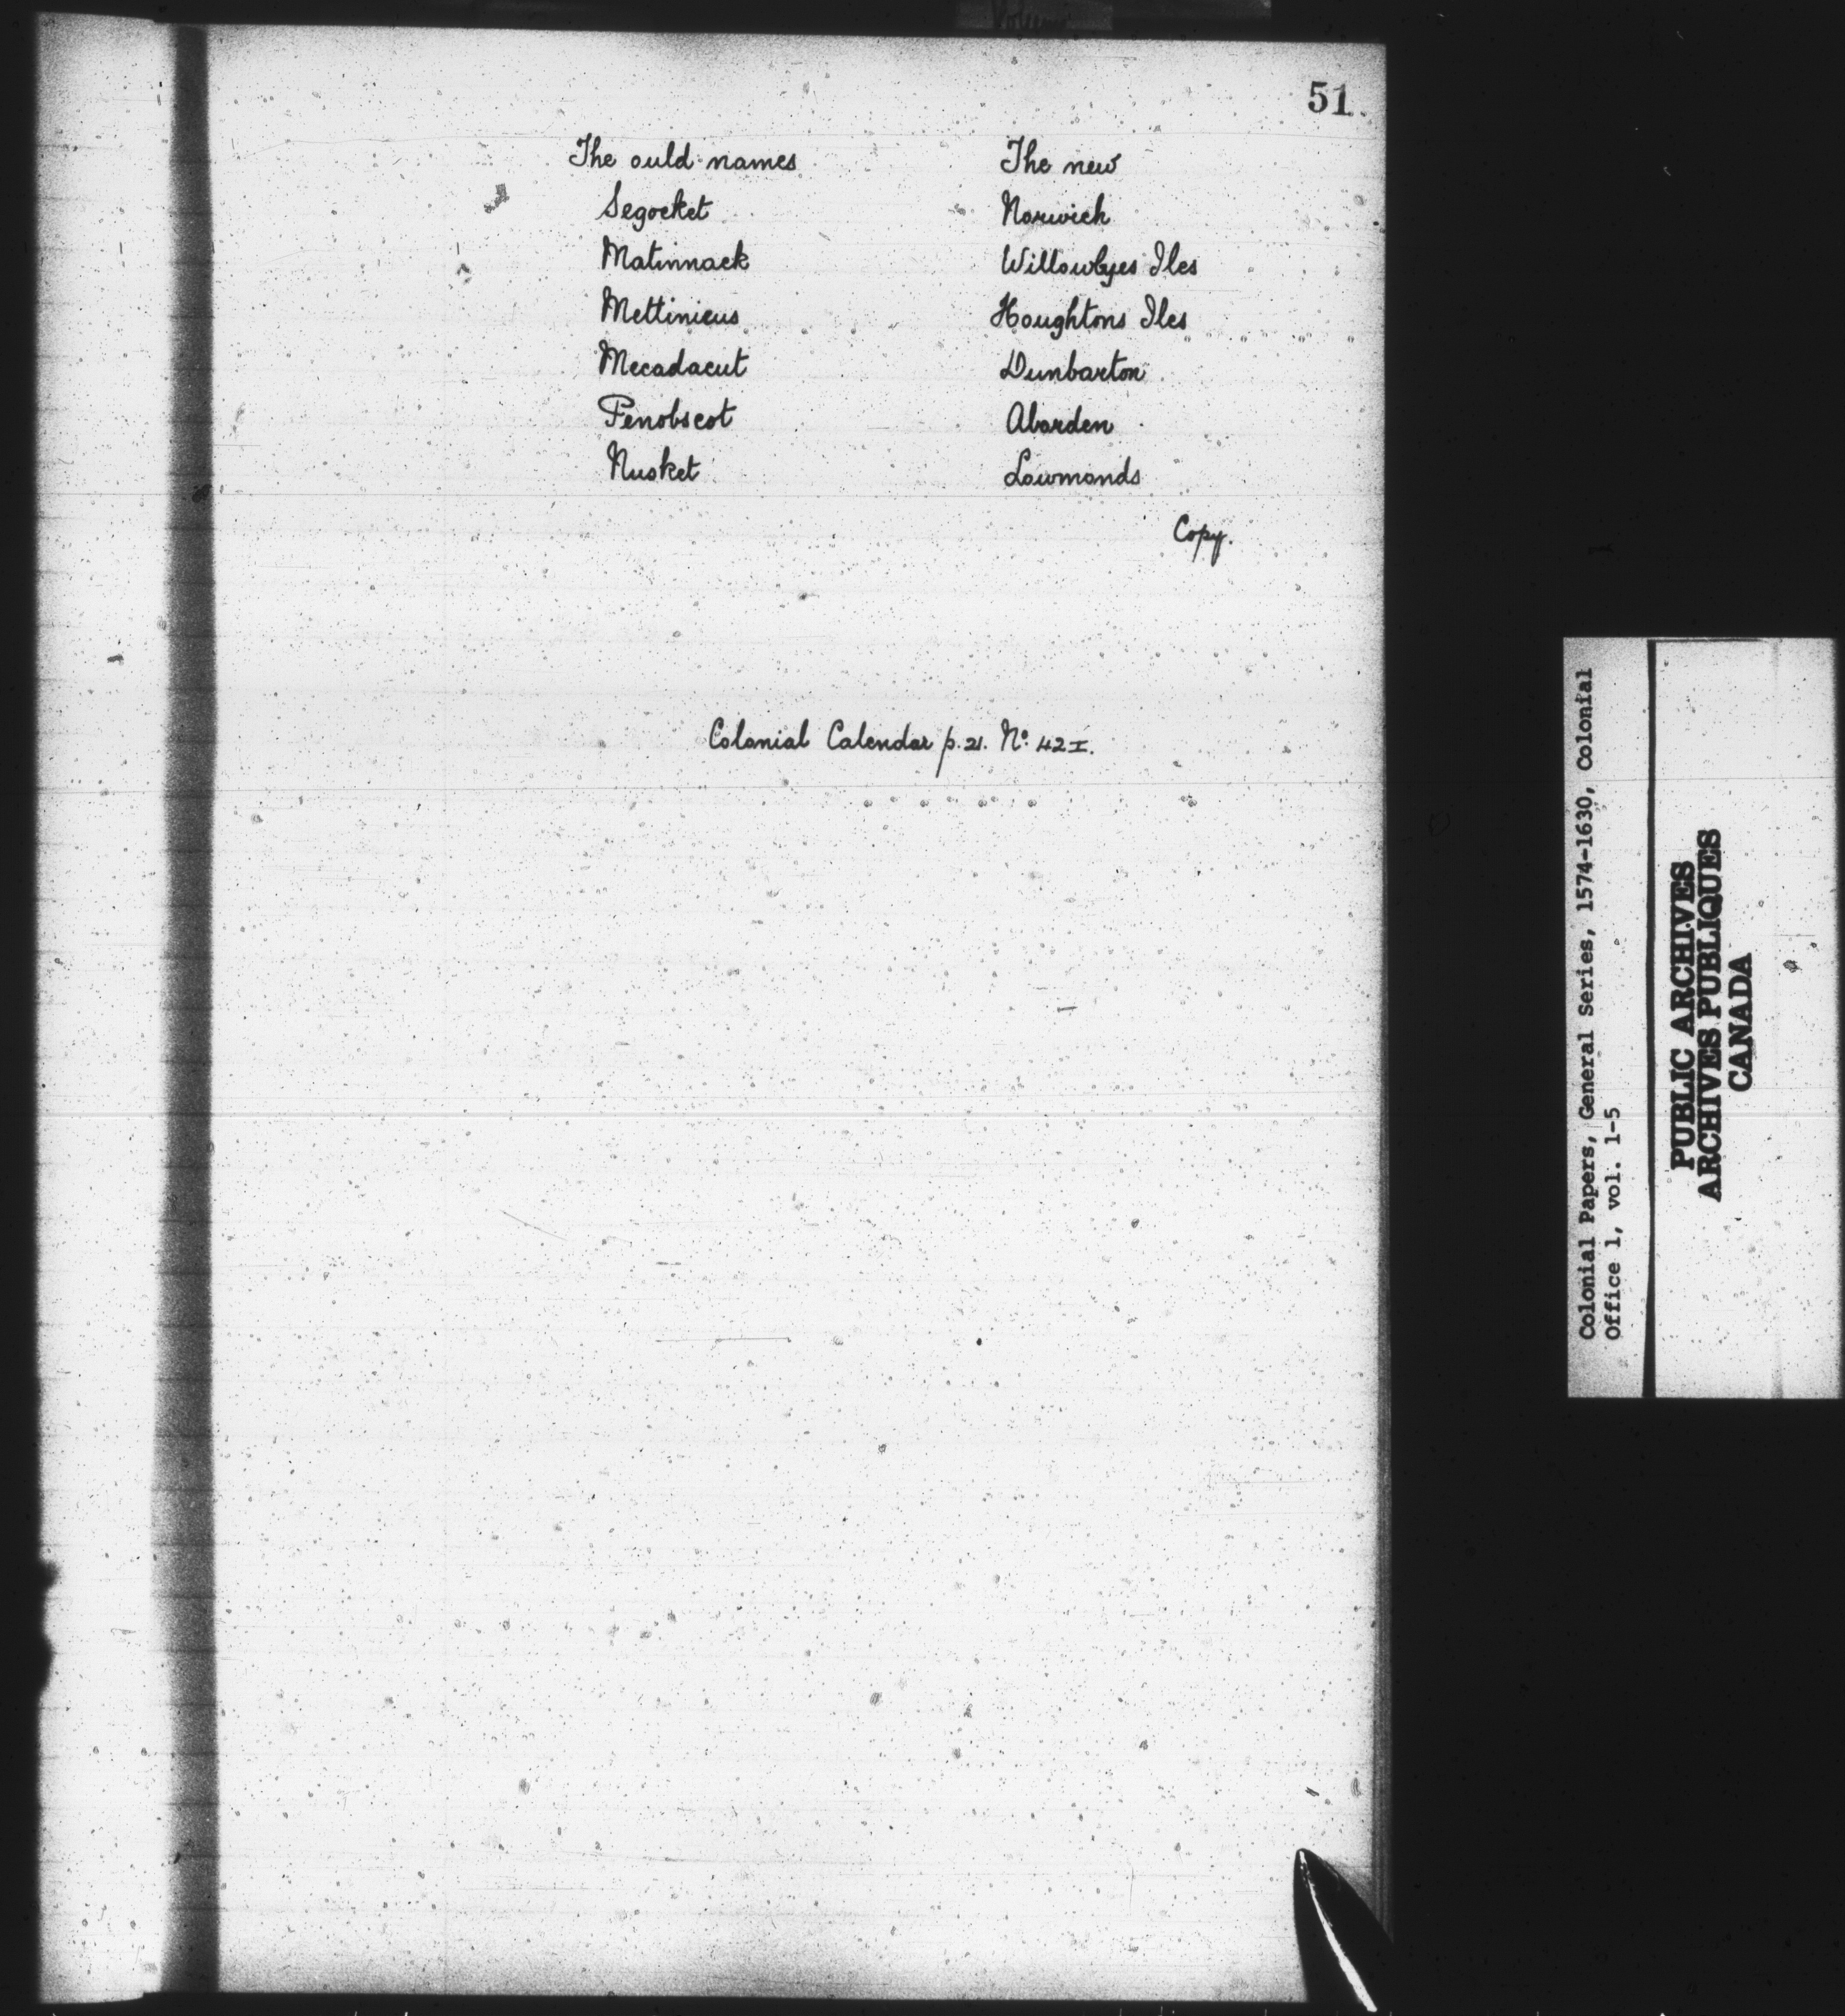 51.
The ould names The new
Segocket Norwich
Matinnack Willowbyes Iles
Mettinicus Houghtons Iles
Mecadacut Dunbarton
Penobscot Abarden
Nusket Lowmonds
Copy.
Colonial Calendar p. 21. No. 42 I.
Colonial Papers, General Series, 1574-1630, Colonial
Office 1, vol. 1-5
PUBLIC ARCHIVES
ARCHIVES PUBLIQUES
CANADA